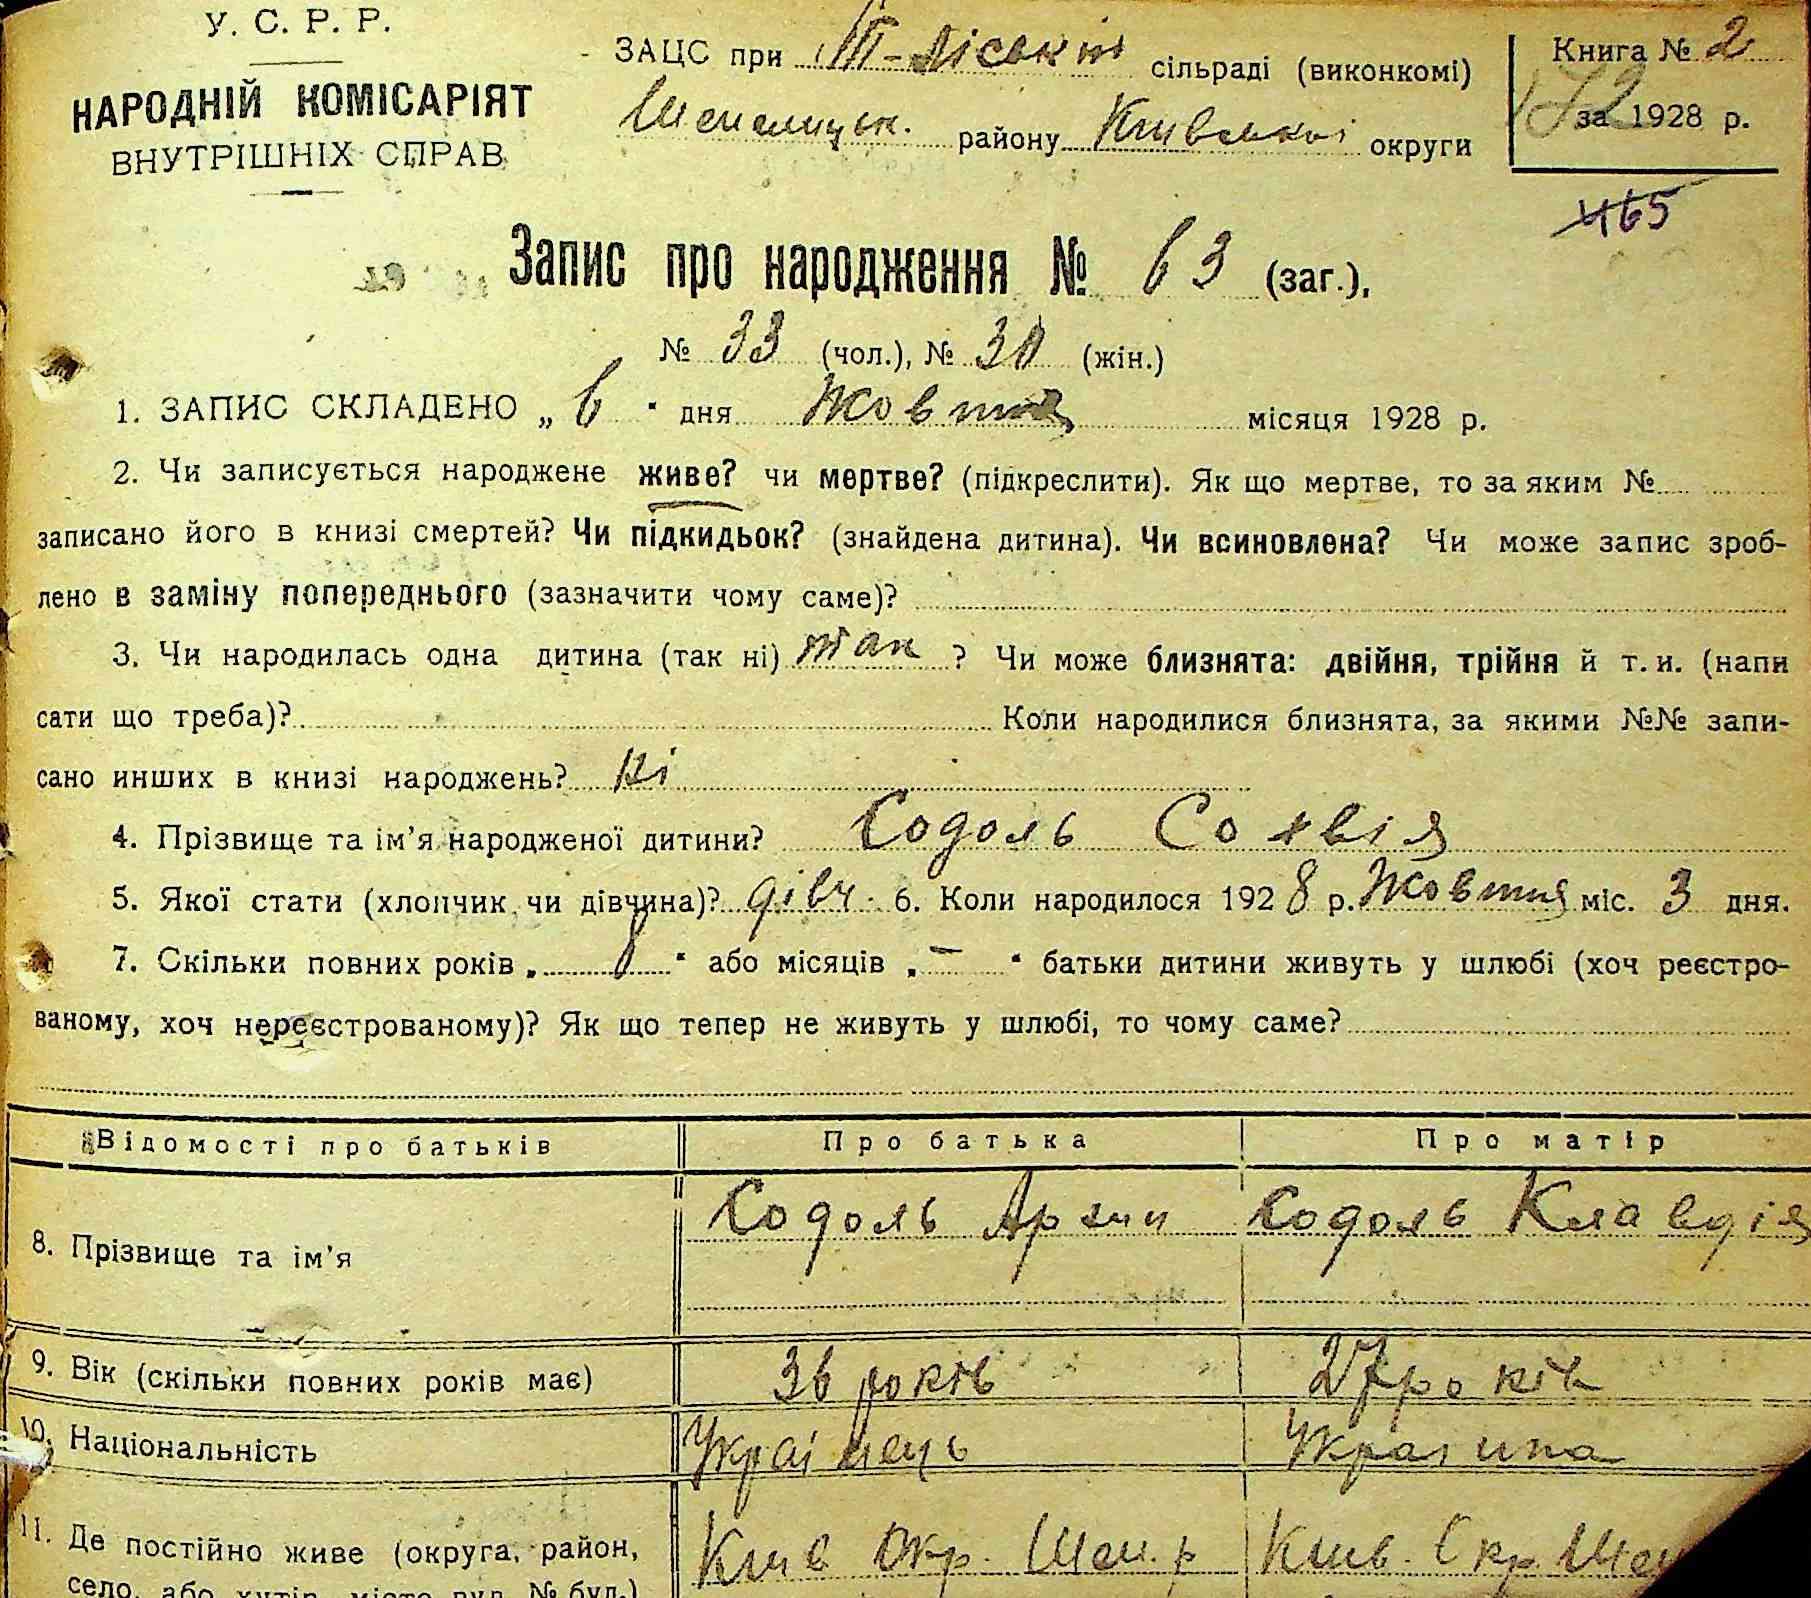 У. С. Р. Р.
НАРОДНІЙ КОМІСАРІЯТ
ВНУТРІШНІХ СПРАВ
ЗАЦС при Т-Ліській сільраді (виконкомі)
району Київської округи
Книга № 2
172
за 1928 р.
465
Запис про народження № 63 (заг.),
№ 33 (чол.), № 30 (жін.)
1. ЗАПИС СКЛАДЕНО „ 6 " дня Жовтня місяця 1928 р.
2. Чи записується народжене живе? чи мертве? (підкреслити). Як що мертве, то за яким №
записано його в книзі смертей? Чи підкидьок? (знайдена дитина). Чи всиновлена? Чи може запис зроб-
лено в заміну попереднього (зазначити чому саме)?
3. Чи народилась одна дитина (так ні) так ? Чи може близнята: двійня, трійня й т. и. (напи
сати що треба)? Коли народилися близнята, за якими №№ запи-
сано инших в книзі народжень? ні
4. Прізвище та ім’я народженої дитини? Содоль Сохвія
5. Якої стати (хлопчик чи дівчина)? дівч. 6. Коли народилося 1928 р. Жовтня міс. 3 дня.
7. Скільки повних років „ 8 " або місяців „ — " батьки дитини живуть у шлюбі (хоч реєстро-
ваному, хоч нереєстрованому)? Як що тепер не живуть у шлюбі, то чому саме?
Відомості про батьків Про батька Про матір
8. Прізвище та ім’я Содоль Архип Содоль Клавдія
9. Вік (скільки повних років має) 36 років 27 років
10. Національність Українець Україпка
11. Де постійно живе (округа, район, Киів Окр. Шеп. р Киів. Окр. Шеп
село, або хутір, місто вул. № буд.)